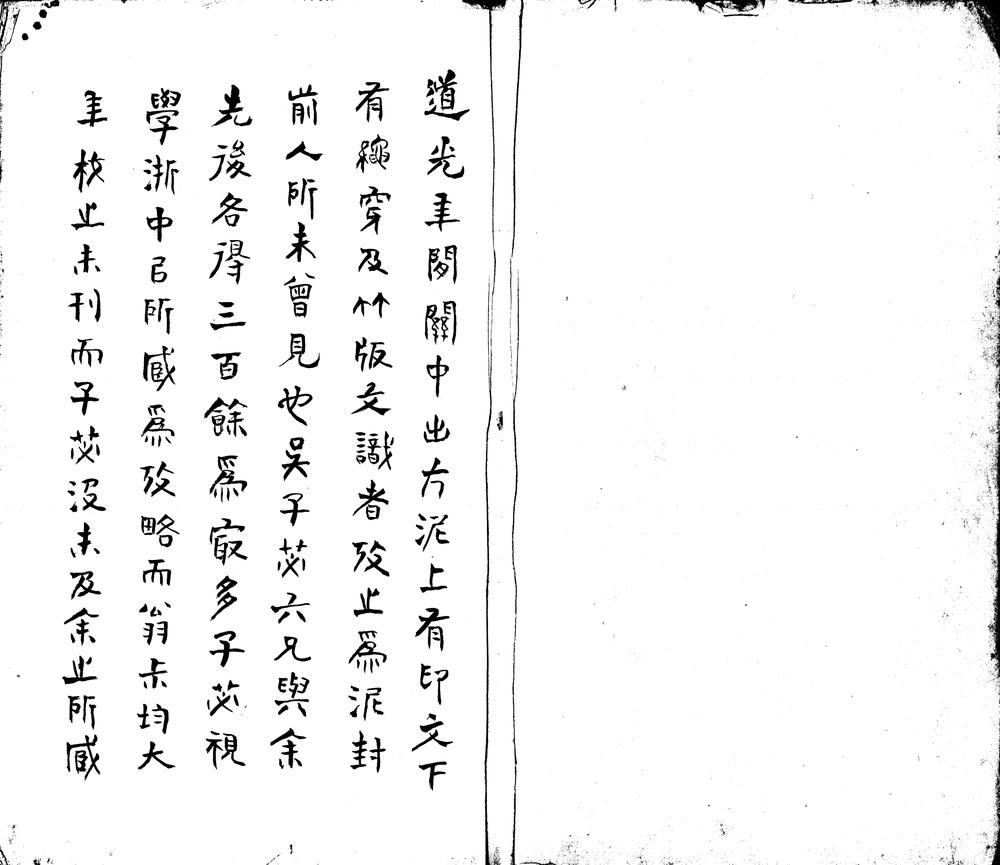 道光年閒關中出方泥上有印文下
有繩穿及竹版文識者攷之爲泥封
前人所未曾見也吳子苾六兄與余
先後各得三百餘爲冣多子苾視
學浙中㠯所臧爲攷略而翁尗均大
年校之未刊而子苾沒未及余之所臧